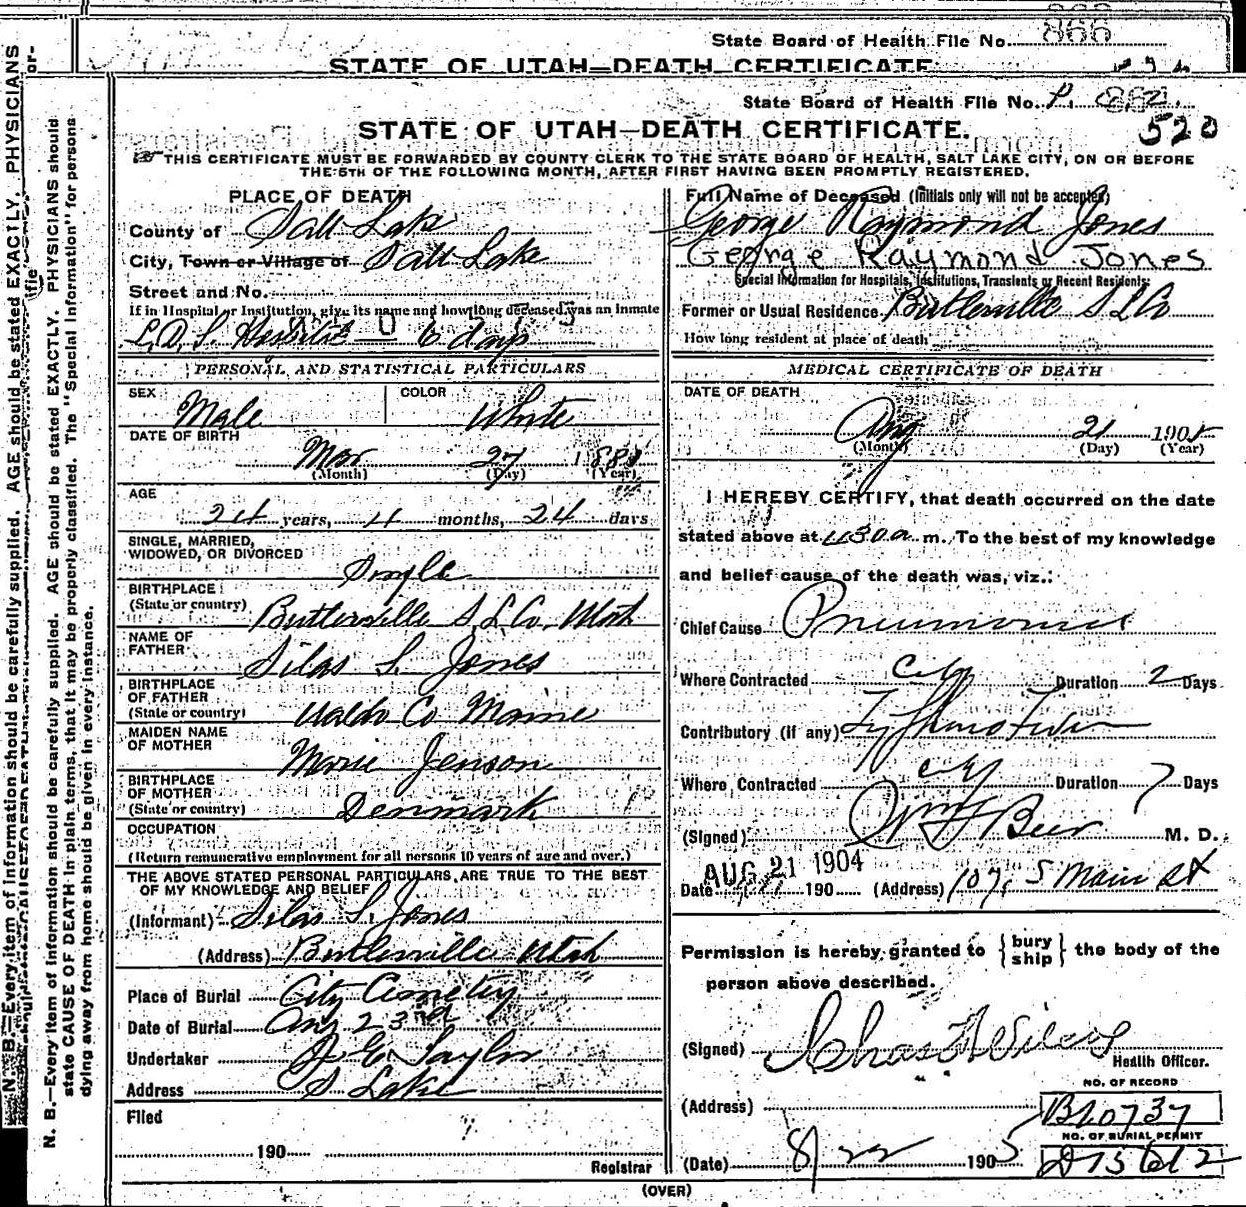 State Board of Health File No. 866
STATE OF UTAH—DEATH CERTIFICATE
State Board of Health File No.
520
STATE OF UTAH—DEATH CERTIFICATE.
THIS CERTIFICATE MUST BE FORWARDED BY COUNTY CLERK TO THE STATE BOARD OF HEALTH, SALT LAKE CITY, ON OR BEFORE
THE 5TH OF THE FOLLOWING MONTH, AFTER FIRST HAVING BEEN PROMPTLY REGISTERED.
PLACE OF DEATH
County of Salt Lake
City, Town or Village of Salt Lake
Street and No.
If in Hospital or Institution, give its name and how long deceased was an inmate
L.D.S. Hospital — 6 days
PERSONAL AND STATISTICAL PARTICULARS
SEX Male COLOR White
DATE OF BIRTH
Mar 27 1881
(Month) (Day) (Year)
AGE
24 years, 4 months, 24 days
SINGLE, MARRIED,
WIDOWED, OR DIVORCED
Single
BIRTHPLACE
(State or country) Butlerville S L Co, Utah
NAME OF
FATHER Silas S. Jones
BIRTHPLACE
OF FATHER
(State or country) Waldo Co Maine
MAIDEN NAME
OF MOTHER Marie Jenson
BIRTHPLACE
OF MOTHER
(State or country) Denmark
OCCUPATION
(Return remunerative employment for all persons 10 years of age and over.)
THE ABOVE STATED PERSONAL PARTICULARS, ARE TRUE TO THE BEST
OF MY KNOWLEDGE AND BELIEF
(Informant) Silas S. Jones
(Address) Butlerville Utah
Place of Burial City Cemetry
Date of Burial Aug 23rd
Undertaker Taylor
Address S. Lake
Filed
190
Registrar
Full Name of Deceased (Initials only will not be accepted)
George Raymond Jones
George Raymond Jones
Special Information for Hospitals, Institutions, Transients or Recent Residents:
Former or Usual Residence Butlerville S L Co
How long resident at place of death
MEDICAL CERTIFICATE OF DEATH
DATE OF DEATH
Aug 21 1905
(Month) (Day) (Year)
I HEREBY CERTIFY, that death occurred on the date
stated above at 430 a m. To the best of my knowledge
and belief cause of the death was, viz.:
Chief Cause Pneumonia
Where Contracted City Duration 2 Days
Contributory (if any) Typhoid Fever
Where Contracted City Duration 7 Days
(Signed) Wm F Beer M. D.
AUG 21 1904
Date 190 (Address) 107 S Main St
Permission is hereby granted to { bury ship } the body of the
person above described.
(Signed) Chas Wilcox
Health Officer.
NO. OF RECORD
(Address) B10737
NO. OF BURIAL PERMIT
(Date) 8/22 1905 D15612
(OVER)
N. B.—Every item of information should be carefully supplied. AGE should be stated EXACTLY. PHYSICIANS should
state CAUSE OF DEATH in plain terms, that it may be properly classified. The "Special Information" for persons
dying away from home should be given in every instance.
N. B.—Every item of information should be carefully supplied. AGE should be stated EXACTLY. PHYSICIANS